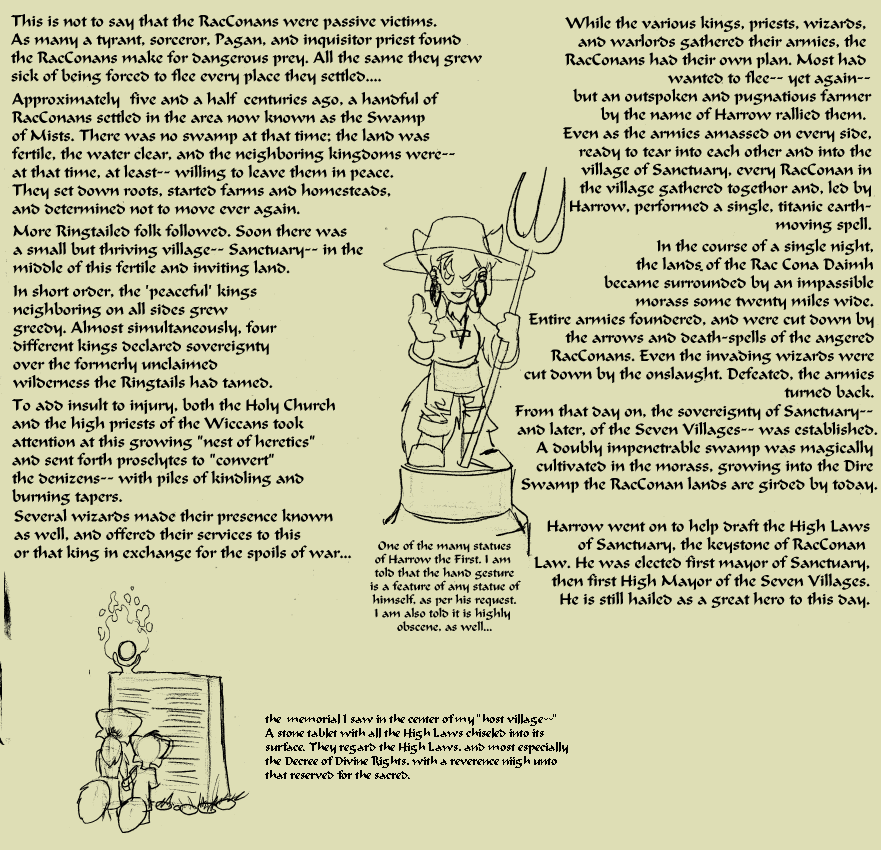 This is not to say that the RacConans were passive victims.
As many a tyrant, sorceror, Pagan, and inquisitor priest found
the RacConans make for dangerous prey. All the same they grew
sick of being forced to flee every place they settled....
Approximately five and a half centuries ago, a handful of
RacConans settled in the area now known as the Swamp
of Mists. There was no swamp at that time; the land was
fertile, the water clear, and the neighboring kingdoms were--
at that time, at least-- willing to leave them in peace.
They set down roots, started farms and homesteads,
and determined not to move ever again.
More Ringtailed folk followed. Soon there was
a small but thriving village-- Sanctuary-- in the
middle of this fertile and inviting land.
In short order, the 'peaceful' kings
neighboring on all sides grew
greedy. Almost simultaneously, four
different kings declared sovereignty
over the formerly unclaimed
wilderness the Ringtails had tamed.
To add insult to injury, both the Holy Church
and the high priests of the Wiccans took
attention at this growing "nest of heretics"
and sent forth proselytes to "convert"
the denizens-- with piles of kindling and
burning tapers.
Several wizards made their presence known
as well, and offered their services to this
or that king in exchange for the spoils of war...
While the various kings, priests, wizards,
and warlords gathered their armies, the
RacConans had their own plan. Most had
wanted to flee-- yet again--
but an outspoken and pugnatious farmer
by the name of Harrow rallied them.
Even as the armies amassed on every side,
ready to tear into each other and into the
village of Sanctuary, every RacConan in
the village gathered togethor and, led by
Harrow, performed a single, titanic earth-
moving spell.
In the course of a single night,
the lands of the Rac Cona Daimh
became surrounded by an impassible
morass some twenty miles wide.
Entire armies foundered, and were cut down by
the arrows and death-spells of the angered
RacConans. Even the invading wizards were
cut down by the onslaught. Defeated, the armies
turned back.
From that day on, the sovereignty of Sanctuary--
and later, of the Seven Villages-- was established.
A doubly impenetrable swamp was magically
cultivated in the morass, growing into the Dire
Swamp the RacConan lands are girded by today.
Harrow went on to help draft the High Laws
of Sanctuary, the keystone of RacConan
Law. He was elected first mayor of Sanctuary,
then first High Mayor of the Seven Villages.
He is still hailed as a great hero to this day.
One of the many statues
of Harrow the First. I am
told that the hand gesture
is a feature of any statue of
himself, as per his request.
I am also told it is highly
obscene, as well...
the memorial I saw in the center of my "host village--"
A stone tablet with all the High Laws chiseled into its
surface. They regard the High Laws, and most especially
the Decree of Divine Rights, with a reverence niigh unto
that reserved for the sacred.